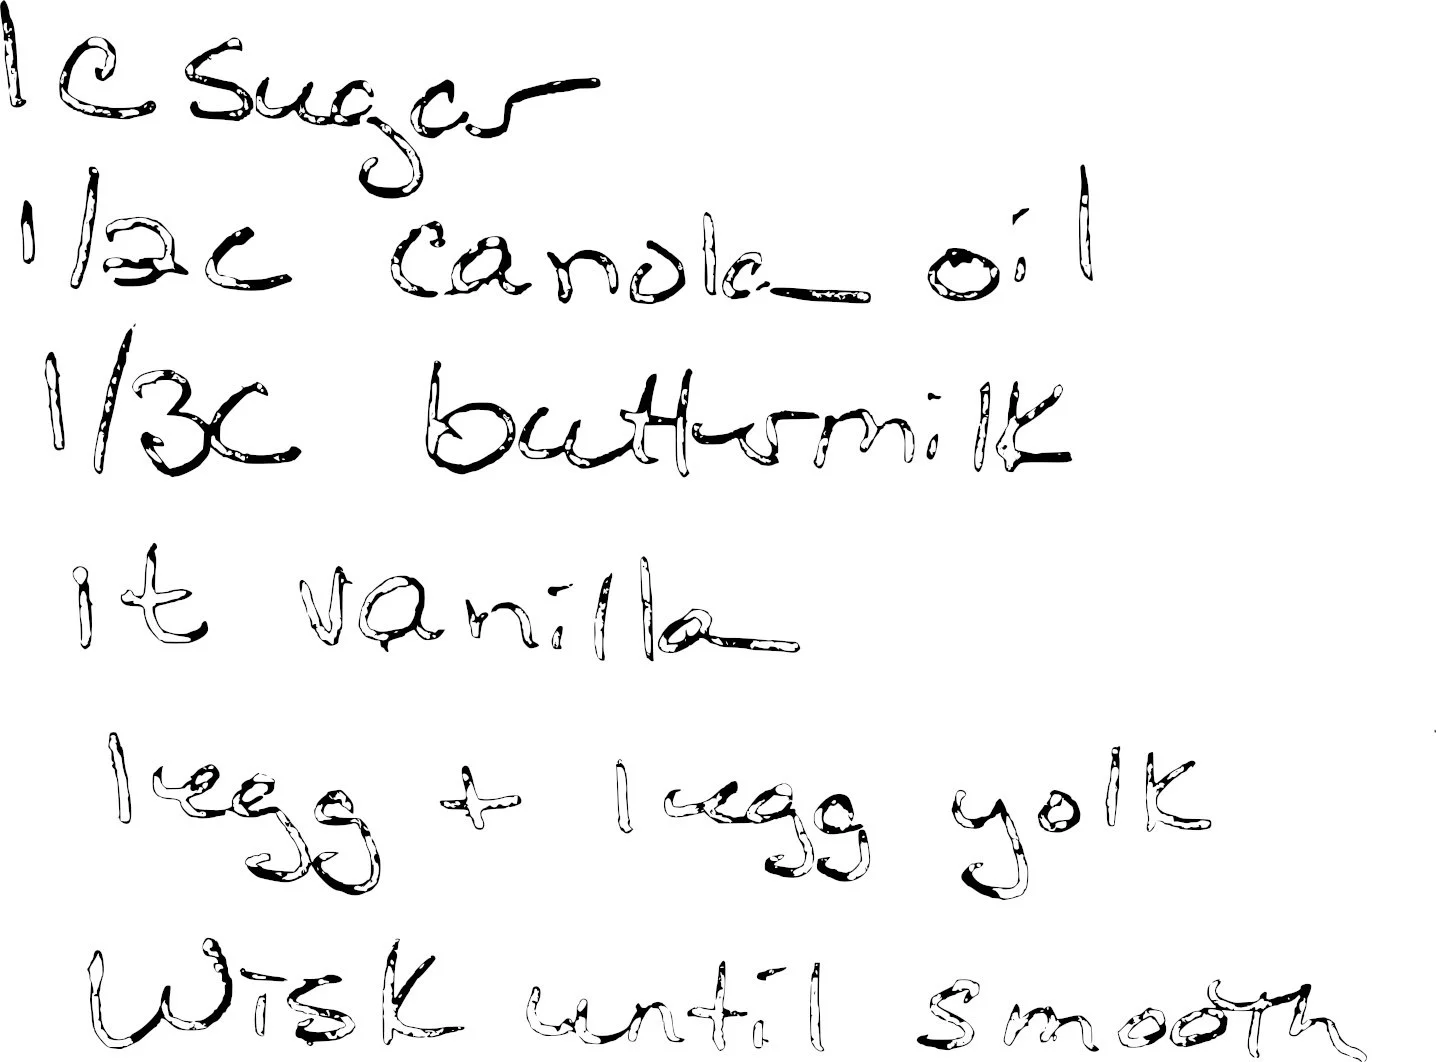 1 c sugar
1/2c canola oil
1/3c buttermilk
1t vanilla
1 egg + 1 egg yolk
Wisk until smooth